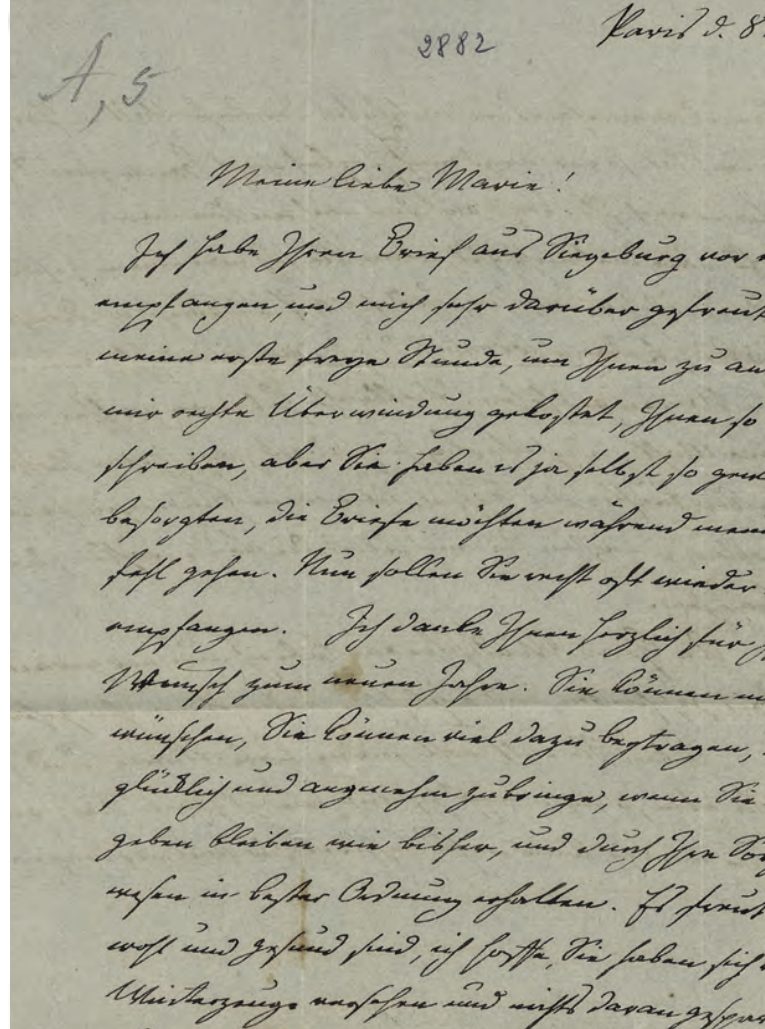 Paris d. 8.
2882
A, 5
Meine liebe Marie!
Ich habe Ihren Brief aus Siegeburg vor
empfangen, und mich sehr darüber gefreut
meine erste freye Stunde, um Ihnen zu an
mir rechte Überwindung gekostet, Ihnen so
schreiben, aber Sie haben es ja selbst so gew
besorgten, die Briefe möchten während mein
fehl gehen. Nun sollen Sie recht oft wieder
empfangen. Ich danke Ihnen herzlich für
Wunsch zum neuen Jahre. Sie können
wünschen, Sie können viel dazu beytragen,
glücklich und angenehm zubringe, wenn Sie
geben bleiben wie bisher, und durch Ihre Sor
wesen in bester Ordnung erhalten. Es freut
wohl und gesund sind, ich hoffe, Sie haben sich
versehen und nichts daran gespar